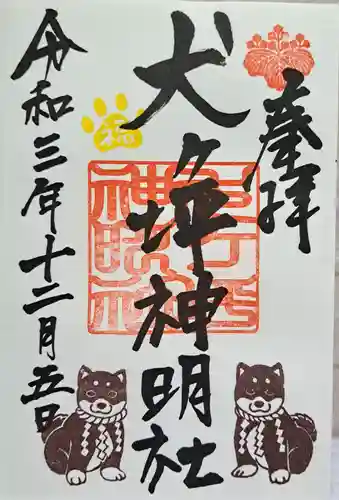 奉拝
犬ヶ坪神明社
福
令和三年十二月五日